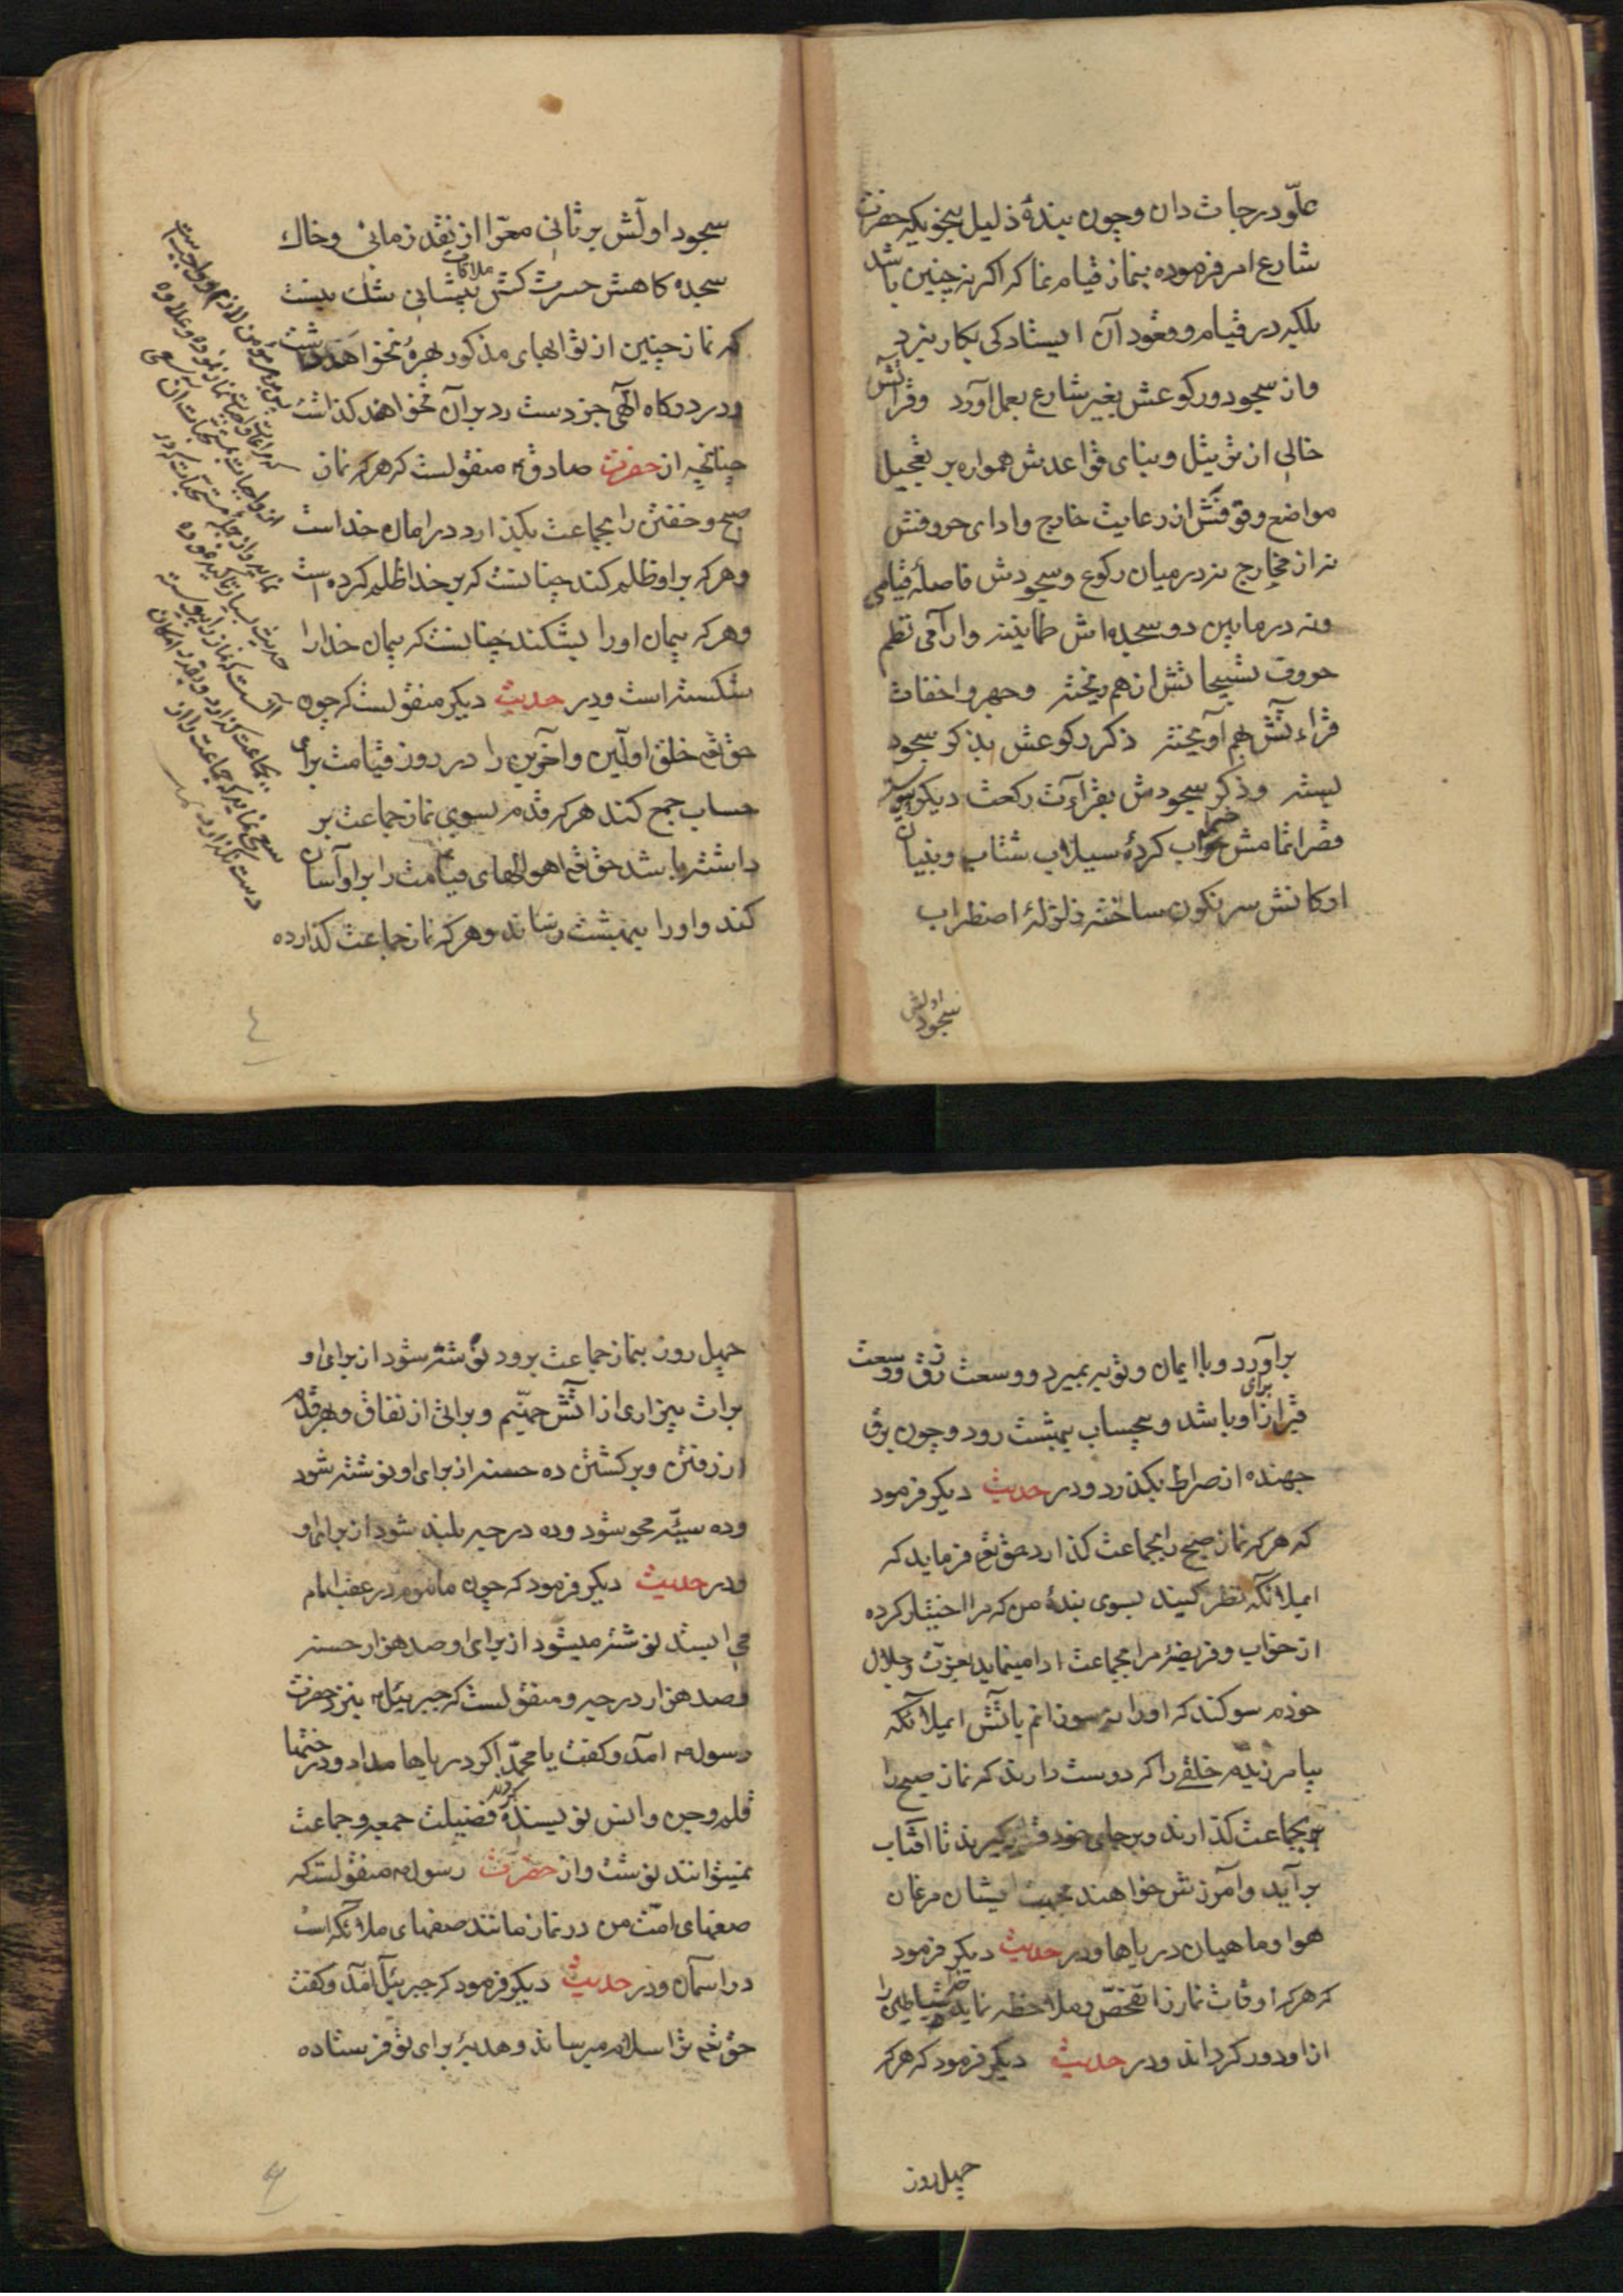 علوّ درجات دان و چون بندهٔ ذلیل بنحویکه حضرت
شارع امر فرموده بنماز قیام نما که اگر نه چنین باشد
بلکه در قیام و قعود آن ایستادکی بکار نبرد
و از سجود و رکوعش بغیر شارع بعمل آورد وقرآئتش
خالی از ترتیل و بنای قواعدش همواره بر تعجیل
مواضع وقوفش از رعایت خارج و ادای حروفش
نه از مخارج نه در میان رکوع و سجودش فاصلهٔ قیامی
و نه در مابین دو سجده اش طمانینه و آرامی نظم
حروف تسبیحاتش از هم ریخته و جهر و اخفات
قراءتش بهم آمیخته ذکر رکوعش بذکر سجود
بسته و ذکر سجودش بقرآءت رکعت دیکر پیوسته
قصر اتمامش خراب کردهٔ سیلاب شتاب و بنیان
ارکانش سرنکون ساخته زلزلهٔ اضطراب
سجود اولش
سجود اولش بر ثانی معرّا از نقد زمانی و خاک
سجده کاهش حسرت کش ملاقات پیشانی شک نیست
که نماز چنین از ثوابهای مذکور بهرهٔ نخواهد داشت
و در درکاه الهی جز دست رد بر آن نخواهند کذاشت
چنانچه از حضرت صادق ع منقولست که هر که نماز
صبح و خفتن را بجماعت بکذارد در امان خداست
و هر که بر او ظلم کند چنانست که بر خدا ظلم کرده است
و هر که پیمان او را بشکند چنانست که پیمان خدا را
شکسته است و در حدیث دیکر منقولست که چون
حق تع خلق اولین و آخرین را در روز قیامت برای
حساب جمع کند هر که قدم بسوی نماز جماعت بر
داشته باشد حق تع اهوالهای قیامت را بر او آسان
کند و او را ببهشت رساند و هر که نماز جماعت کذارده
٤
برآورد و با ایمان و توبه بمیرد و وسعت رزق و وسعت
قبر از برای او باشد و بیحساب ببهشت رود و چون برق
جهنده از صراط بکذرد و در حدیث دیکر فرمود
که هر که نماز صبح را بجماعت کذارد حق تع فرماید که
ایملائکه نظر کنید بسوی بندهٔ من که مرا اختیار کرده
از خواب و فریضهٔ مرا بجماعت ادا مینماید بعزّت و جلال
خودم سوکند که او را نسوزانم بآتش ایملائکه
بیامرزیدم خلقی را که دوست دارند که نماز صبح را
بجماعت کذارند و بر جای خود قرار کیرند تا آفتاب
برآید و آمرزش خواهند بجهت ایشان مرغان
هوا و ماهیان دریاها و در حدیث دیکر فرمود
که هر که اوقات نماز را تفحّص و ملاحظه نماید شیاطین را
از او دور کرداند و در حدیث دیکر فرمود که هر که
چهل روز
چهل روز بنماز جماعت برود نوشته شود از برای او
برات بیزاری از آتش جهنّم و براتی از نفاق و بهر قدم
از رفتن و برکشتن ده حسنه از برای او نوشته شود
و ده سیئّه محو شود و ده درجه بلند شود از برای او
و در حدیث دیکر فرمود که چون ماموم در عقب امام
می ایستد نوشته میشود از برای او صد هزار حسنه
و صد هزار درجه و منقولست که جبرئیل ع بنزد حضرت
رسول ص آمد و کفت یا محمّد اکر دریاها مداد و درختها
قلم و جن و انس نویسنده کردند فضیلت جمعه و جماعت
نمیتوانند نوشت و از حضرت رسول ص منقولست که
صفهای امّت من در نماز مانند صفهای ملائکه است
در آسمان و در حدیث دیکر فرمود که جبرئیل آمد و کفت
حق تع ترا سلام میرساند و هدیهٔ برای تو فرستاده